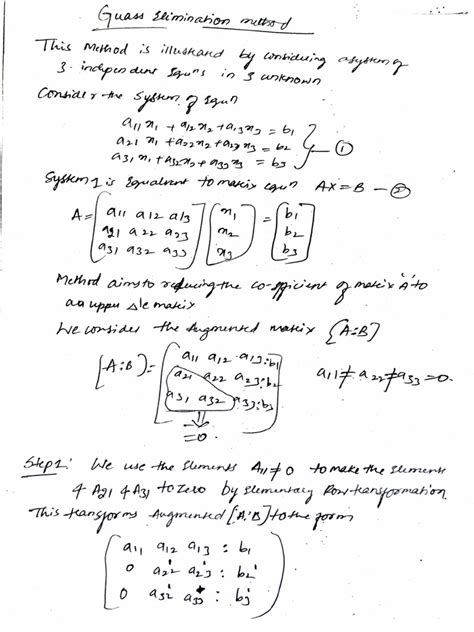 Guass Elimination method
This Method is illustrand by considering a system of
3 independent Equns in 3 unknown
Consider the System of Equn
a11x1 + a12x2 + a13x3 = b1
a21x1 + a22x2 + a23x3 = b2 } — ①
a31x1 + a32x2 + a33x3 = b3
System 1 is Equalvent to matrix equn AX = B — ②
A = [a11 a12 a13] [x1] = [b1]
[a21 a22 a23] [x2] [b2]
[a31 a32 a33] [x3] [b3]
Method aims to reducing the co-efficient of matrix 'A' to
an upper Δle matrix
We consider the Augmented matrix [A:B]
[A:B] = (a11 a12 a13 : b1
a21 a22 a23 : b2 a11 ≠ a22 ≠ a33 = 0.
a31 a32 a33 : b3)
⇓
= 0.
Step 1: We use the Elements A11 ≠ 0 to make the Elements
of A21 & A31 to Zero by Elementary Row transformation.
This transforms Augmented [A:B] to the form
(a11 a12 a13 : b1
0 a22' a23' : b2'
0 a32' a33' : b3')